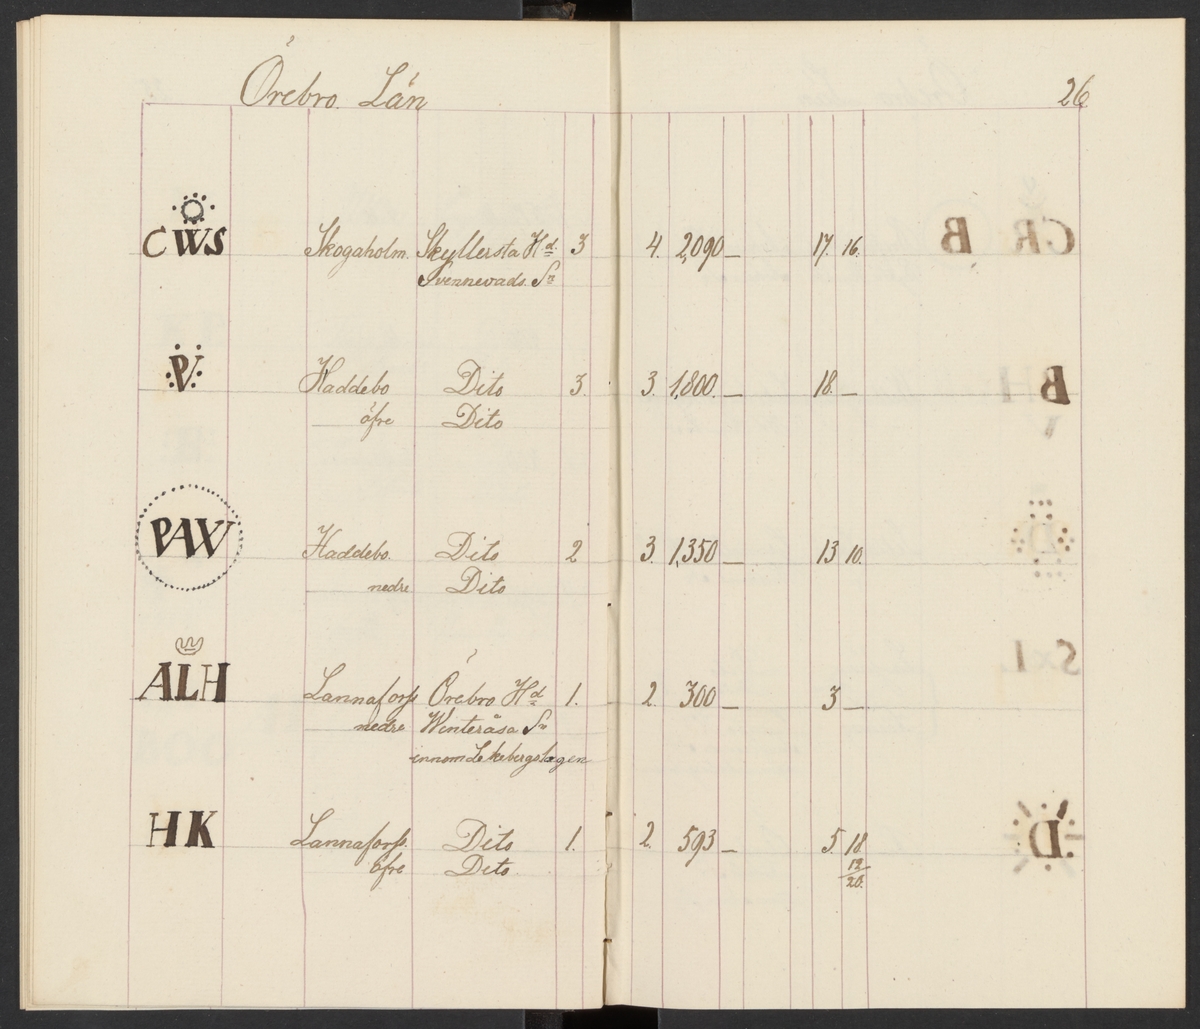 Örebro. Län
26
CWS Skogaholm. Skyllersta Hd. 3 4. 2,090 — 17. 16.
Svennevads. Sn
V Haddebo Dito 3. 3. 1,800. — 18. —
öfre Dito
PAW Haddebo. Dito 2 3. 1,350 — 13 10.
nedre Dito
ALH Lannaforss Örebro Hd 1. 2. 300 — 3 —
nedre Winteråsa Sn
innom Lekebergslagen
HK Lannaforss. Dito 1. 2. 593 — 5. 18.
öfre Dito 12
20.